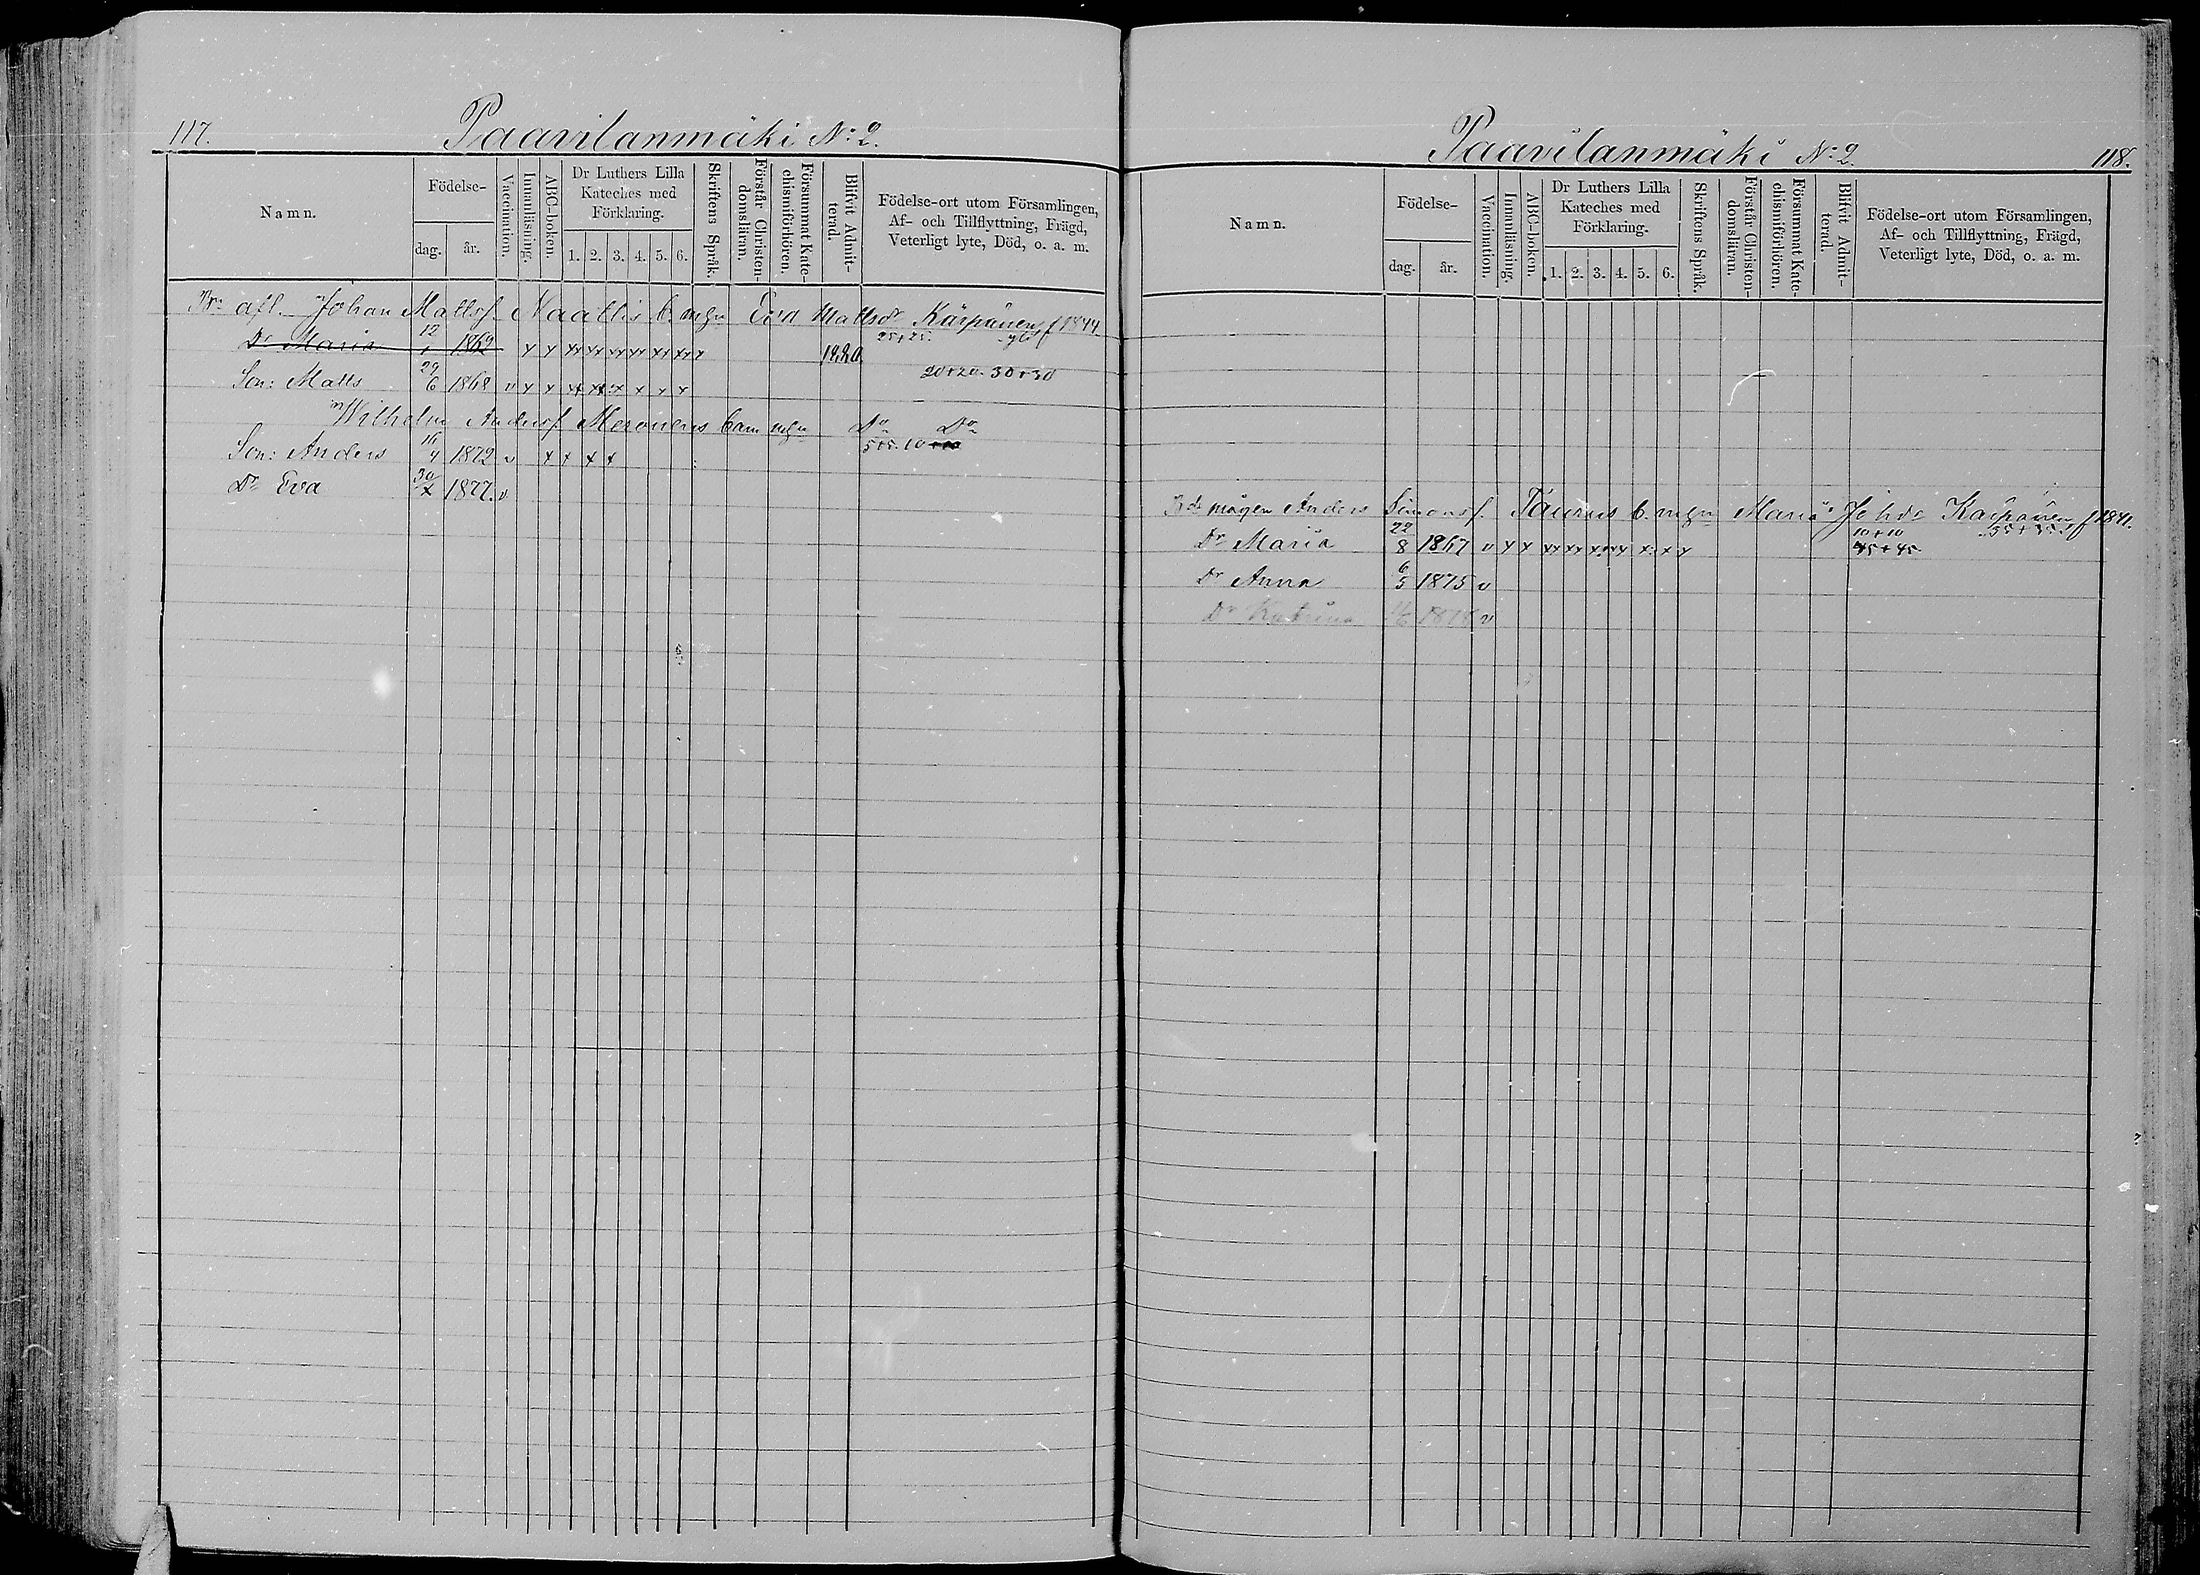 117.
Paavilanmäki No: 2.
Namn.
Födelse-
dag.
år.
Vaccination.
Innanläsning.
ABC-boken.
Dr Luthers Lilla
Kateches med
Förklaring.
1. 2. 3. 4. 5. 6.
Skriftens Språk.
Förstår Christen-
domsläran.
Försummat Kate-
chismiförhören.
Blifvit Admit-
terad.
Födelse-ort utom Församlingen,
Af- och Tillflyttning, Frägd,
Veterligt lyte, Död, o. a. m.
afl. Johan Mattsf. Eva Mattsdr f 1844
25+25.
Dr Maria 12/1 1862 x x xx xx xx xx xx xx x 1880
Son: Matts 29/6 1868 v x x x xx x x x x 20+20. 30+30
Wilhelm Andersf. Do Do
5+5. 10
Son: Anders 16/4 1872 v x x x x
Dr Eva 30/x 1877. v
Paavilanmäki No: 2.
118.
Namn.
Födelse-
dag.
år.
Vaccination.
Innanläsning.
ABC-boken.
Dr Luthers Lilla
Kateches med
Förklaring.
1. 2. 3. 4. 5. 6.
Skriftens Språk.
Förstår Christen-
domsläran.
Försummat Kate-
chismiförhören.
Blifvit Admit-
terad.
Födelse-ort utom Församlingen,
Af- och Tillflyttning, Frägd,
Veterligt lyte, Död, o. a. m.
mågen Anders Simonsf. Maria Johdr f 1841.
10+10
Dr Maria 22/8 1867 v x x xx xx xx x x x x 45+45
Dr Anna 6/5 1875 v
Dr Katrina 1878 v